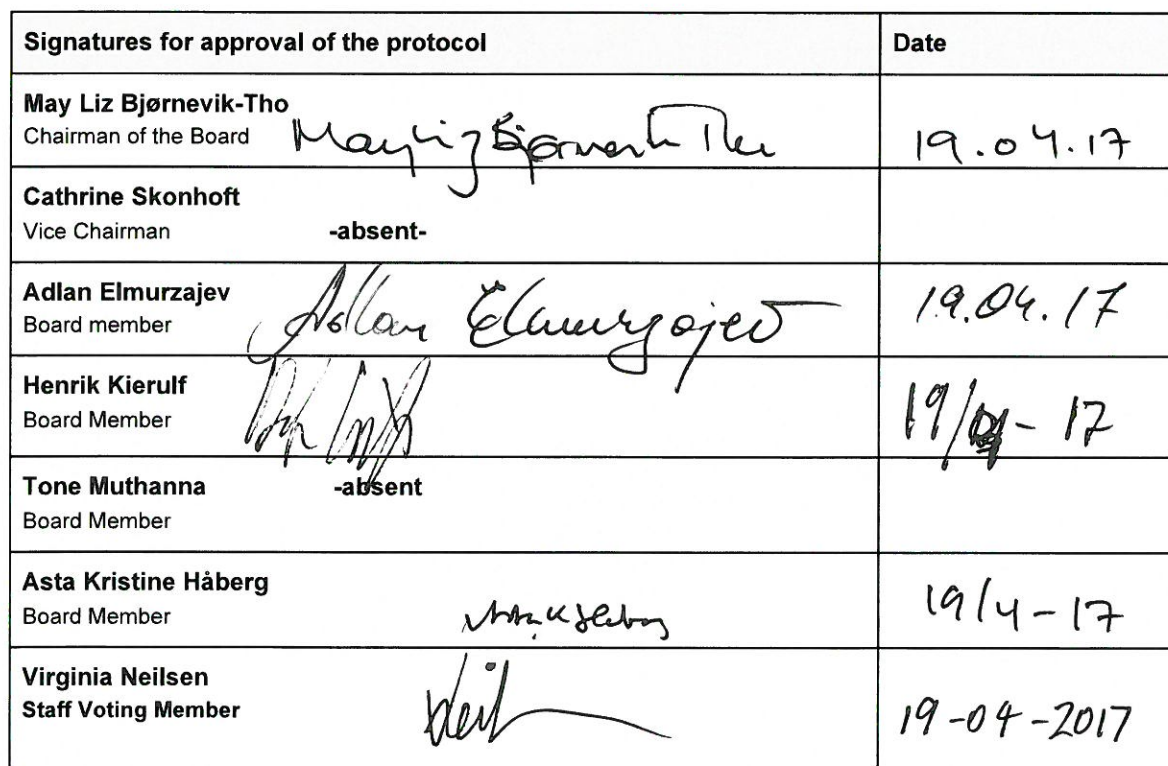 Signatures for approval of the protocol Date
May Liz Bjørnevik-Tho
Chairman of the Board May Liz Bjørnevik Tho 19.04.17
Cathrine Skonhoft
Vice Chairman -absent-
Adlan Elmurzajev
Board member Adlan Elmurzajev 19.04.17
Henrik Kierulf
Board Member 19/04-17
Tone Muthanna -absent
Board Member
Asta Kristine Håberg
Board Member Asta K Håberg 19/4-17
Virginia Neilsen
Staff Voting Member 19-04-2017